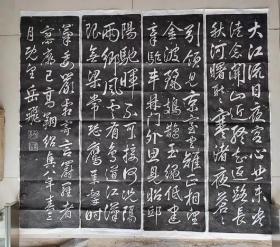 大江流日夜客心悲未央
徒念關山近終知返路長
秋河曙耿耿寒渚夜蒼蒼
引領見京室宮雉正相望
金波麗鳷鵲玉繩低建
章驅車鼎門外思見昭邱
陽馳暉不可接何況隔
兩鄉風雲有鳥道江漢
限無梁常恐鷹隼擊時
菊委嚴霜寄言罻羅者
寥廓已高翔紹興八年
月既望岳飛